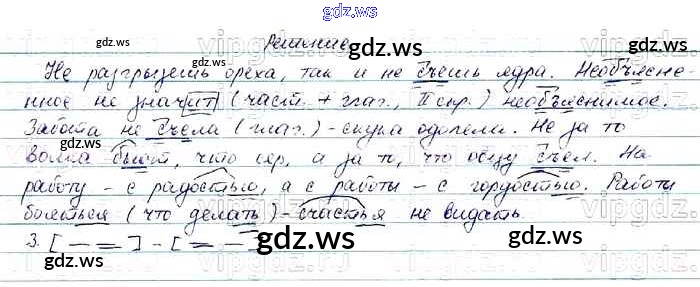 gdz.ws
Решение
gdz.ws
gdz.ws
Не разгрызешь ореха, так и не съешь ядра. Необъясне-
нное не значит (част. + глаг., II спр.) необъяснимое.
Забота не съела (глаг.) - скука одолела. Не за то
волка бьют, что сер, а за то, что овцу съел. На
работу - с радостью, а с работы - с гордостью. Работы
бояться (что делать) - счастья не видать.
3. [— =] - [= —]
gdz.ws
gdz.ws
gdz.ws